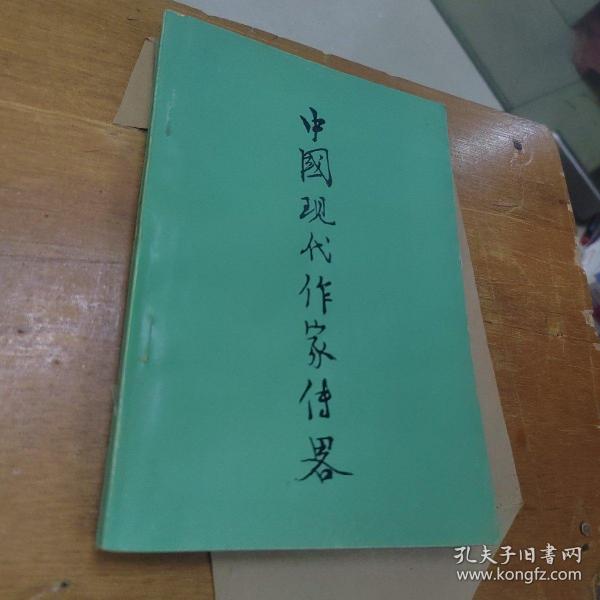 中國现代作家传畧
孔夫子旧書网
www.kongfz.com